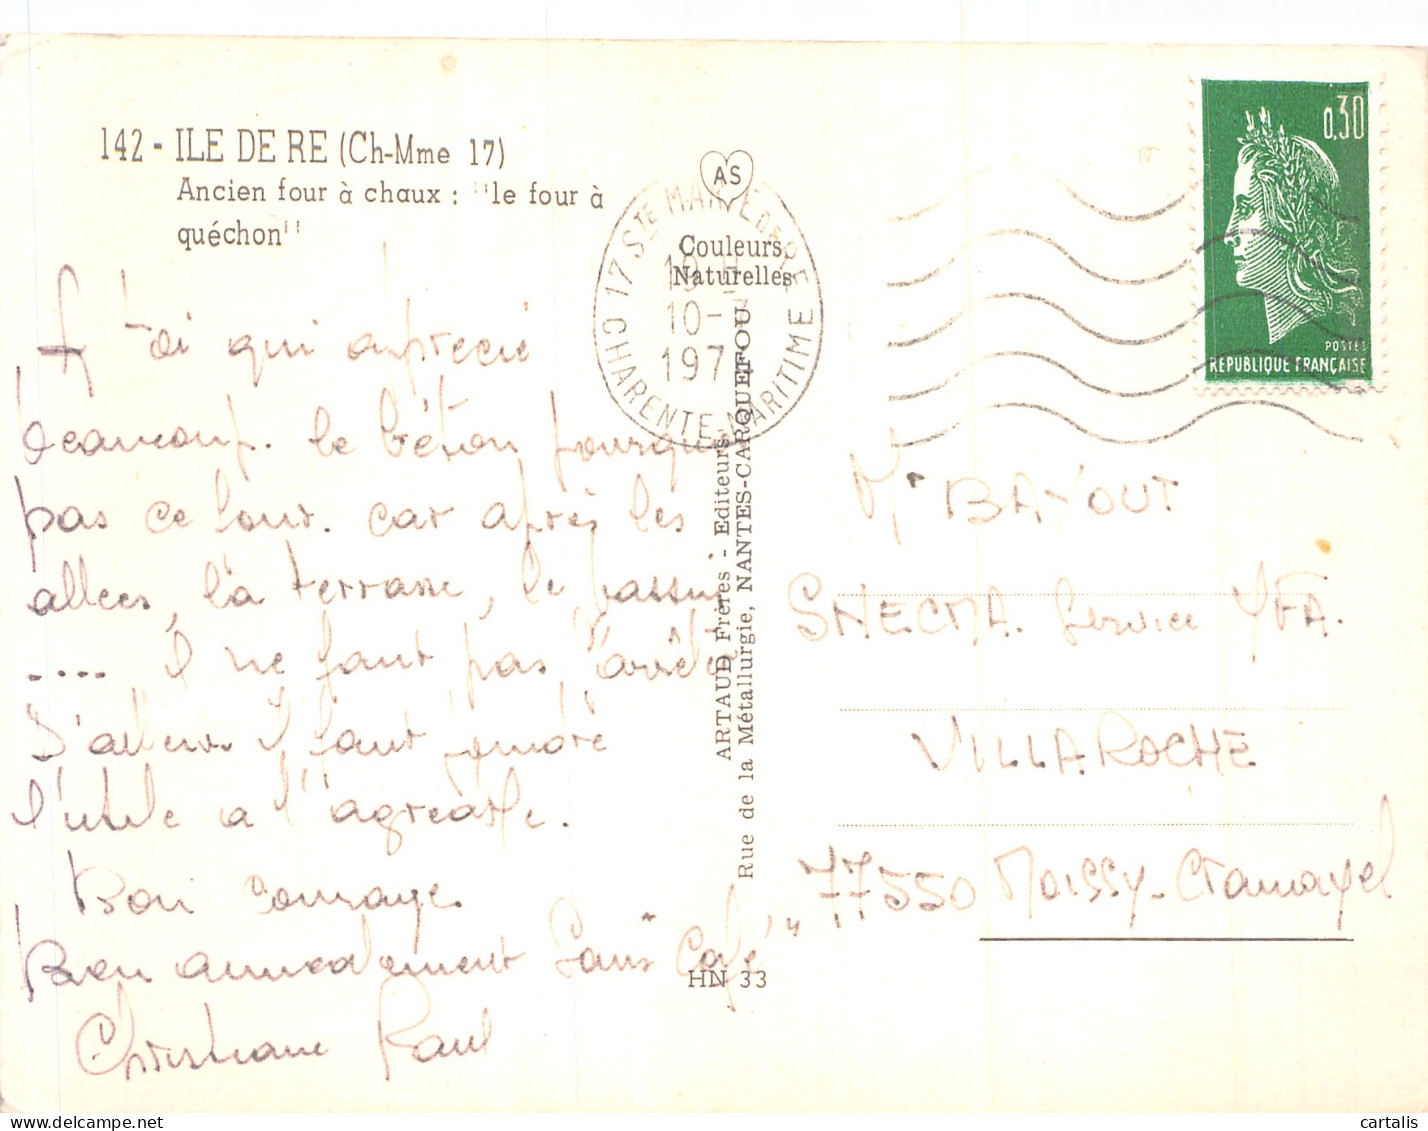 142 - ILE DE RE (Ch-Mme 17)
Ancien four à chaux : "le four à
quéchon"
A toi qui apprecie
beaucoup. le béton pourquoi
pas ce four. car après les
allees, la terrasse, le
.... il ne faut pas l'arrêté
D'ailleurs il faut joindre
l'utile a l'agreable.
Bon courage.
Bien amicalement Sans "Café"
Christiane Raul
AS
Couleurs
Naturelles
ARTAUD Frères - Editeurs
Rue de la Métallurgie, NANTES-CARQUEFOU
HN 33
17 STE MARIE DE RE
10 -
197
CHARENTE-MARITIME
0,30
POSTES
REPUBLIQUE FRANÇAISE
Mr BAYOUT
SNECMA. Service YFA.
VILLAROCHE
77550 MOISSY-Cramayel
cartalis